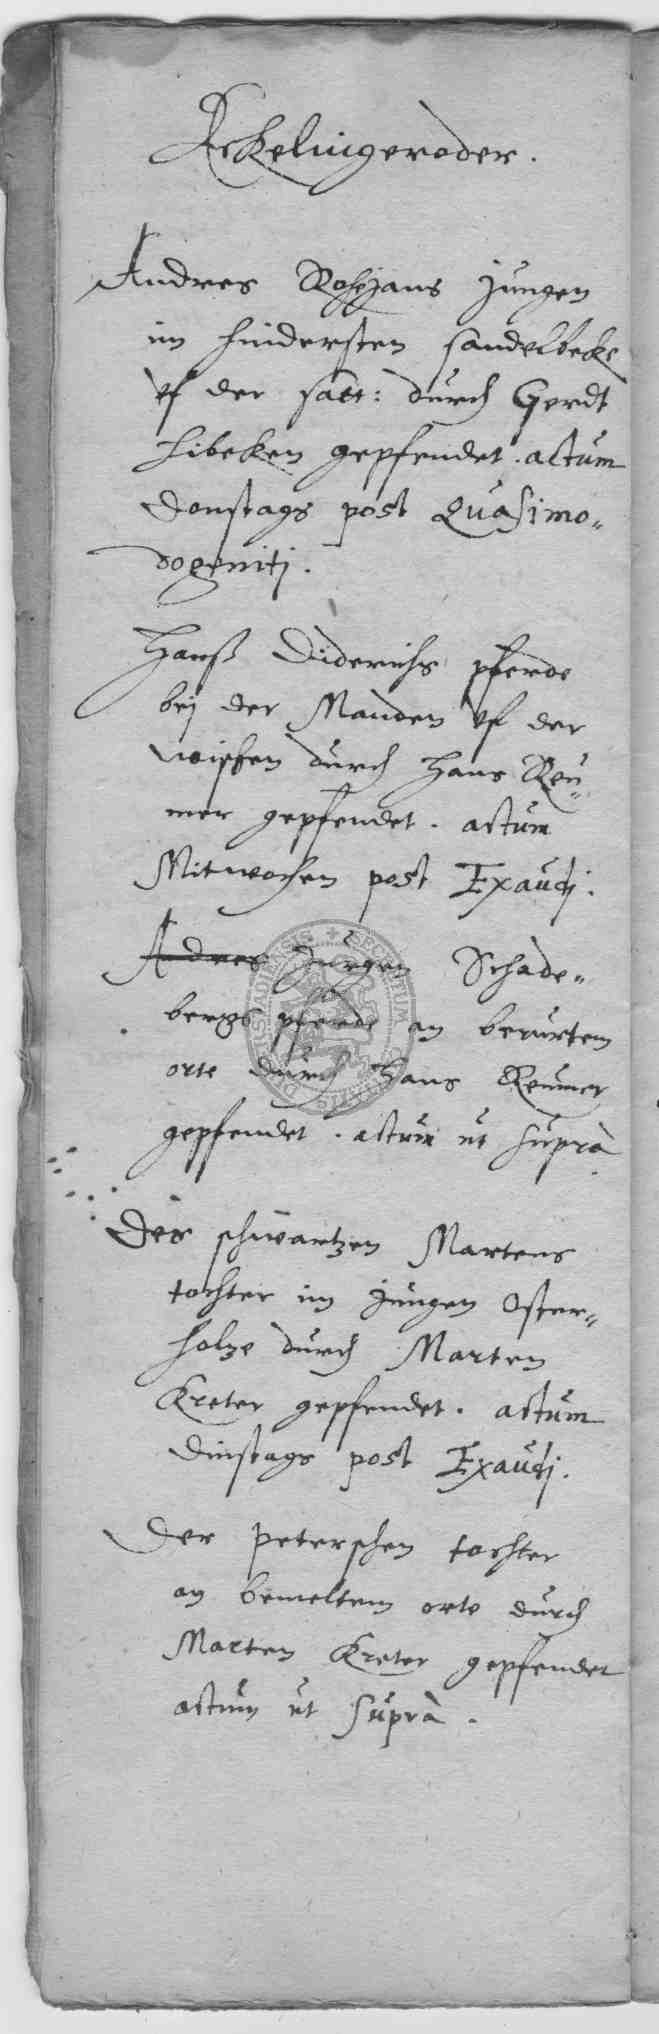 Eckelingeroder.
Andres Roßhans Jungen
im hindersten sandelbeke
vf der satt: durch Gerdt
Libeken gepfendet. actum
Donstags post Quasimo-
dogeniti.
Hanß Diderichs pferde
bei der Manden vf der
wissen durch Hans Reu-
mer gepfendet. actum
Mitwochen post Exaudj.
Andres Jurgen Schade-
bergs pferde an berurtem
orte durch Hans Reumer
gepfendet. actum ut suprà
Des schwartzen Martens
tochter im jungen Oster-
holze durch Marten
Kreter gepfendet. actum
Dinstags post Exaudj.
Der Peterschen tochter
an bemeltem orte durch
Marten Kreter gepfendet
actum ut suprà.